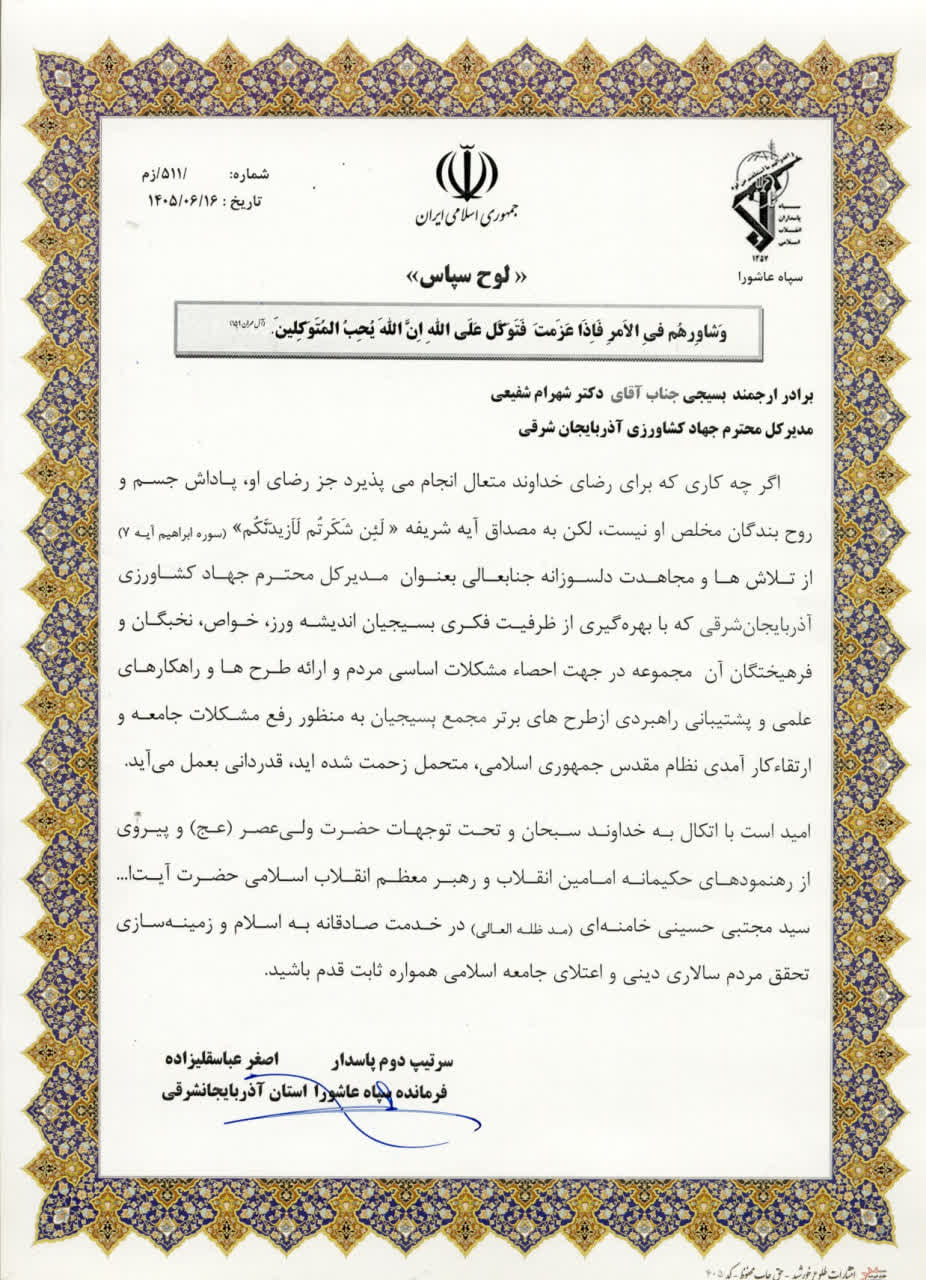 سپاه
پاسداران
انقلاب
اسلامی
۱۳۵۷
سپاه عاشورا
جمهوری اسلامی ایران
شماره: ‎/۵۱۱/زم
تاریخ : ۱۴۰۵/۰۶/۱۶
« لوح سپاس»
وَشاوِرهُم فیِ الاَمرِ فَاِذَا عَزَمتَ فَتَوَکَّل عَلَی اللهِ اِنَّ اللهَ یُحِبُ المُتَوَکِلینَ. (آل عمران ۱۵۹)
برادر ارجمند بسیجی جناب آقای دکتر شهرام شفیعی
مدیرکل محترم جهاد کشاورزی آذربایجان شرقی
اگر چه کاری که برای رضای خداوند متعال انجام می پذیرد جز رضای او، پاداش جسم و
روح بندگان مخلص او نیست، لکن به مصداق آیه شریفه « لَئِن شَکَرتُم لَاَزیدَنَّکُم» (سوره ابراهیم آیه ۷)
از تلاش ها و مجاهدت دلسوزانه جنابعالی بعنوان مدیرکل محترم جهاد کشاورزی
آذربایجان‌شرقی که با بهره‌گیری از ظرفیت فکری بسیجیان اندیشه ورز، خواص، نخبگان و
فرهیختگان آن مجموعه در جهت احصاء مشکلات اساسی مردم و ارائه طرح ها و راهکارهای
علمی و پشتیبانی راهبردی ازطرح های برتر مجمع بسیجیان به منظور رفع مشکلات جامعه و
ارتقاءکار آمدی نظام مقدس جمهوری اسلامی، متحمل زحمت شده اید، قدردانی بعمل می‌آید.
امید است با اتکال به خداوند سبحان و تحت توجهات حضرت ولی‌عصر (عج) و پیروی
از رهنمودهای حکیمانه امامین انقلاب و رهبر معظم انقلاب اسلامی حضرت آیت‌ا...
سید مجتبی حسینی خامنه‌ای (مد ظله العالی) در خدمت صادقانه به اسلام و زمینه‌سازی
تحقق مردم سالاری دینی و اعتلای جامعه اسلامی همواره ثابت قدم باشید.
سرتیپ دوم پاسدار اصغر عباسقلیزاده
فرمانده سپاه عاشورا استان آذربایجانشرقی
انتشارات طلوع خورشید - حق چاپ محفوظ - کد ۴۰۵